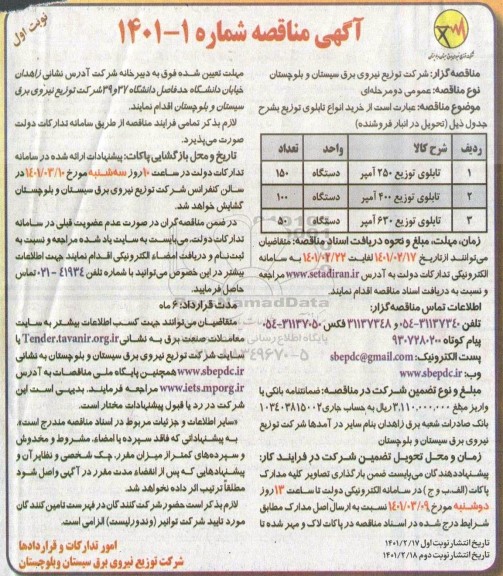 نوبت اول
آگهی مناقصه شماره ۱-۱۴۰۱
مناقصه گزار: شرکت توزیع نیروی برق سیستان و بلوچستان
نوع مناقصه: عمومی دو مرحله‌ای
موضوع مناقصه: عبارت است از خرید انواع تابلوی توزیع بشرح
جدول ذیل (تحویل در انبار فروشنده)
ردیف شرح کالا واحد تعداد
۱ تابلوی توزیع ۲۵۰ آمپر دستگاه ۱۵۰
۲ تابلوی توزیع ۴۰۰ آمپر دستگاه ۱۰۰
۳ تابلوی توزیع ۶۳۰ آمپر دستگاه ۵۰
زمان، مهلت، مبلغ و نحوه دریافت اسناد مناقصه: متقاضیان
می‌توانند از تاریخ ۱۴۰۱/۰۲/۱۷ لغایت ۱۴۰۱/۰۲/۲۲ به سامانه
الکترونیکی تدارکات دولت به آدرس www.setadiran.ir مراجعه
و نسبت به دریافت اسناد مناقصه اقدام نمایند.
اطلاعات تماس مناقصه گزار:
تلفن ۳۱۱۳۷۳۴۰-۰۵۴ و ۳۱۱۳۷۳۴۸ فکس ۳۱۱۳۷۰۵۰-۰۵۴
پیام کوتاه ۹۳۰۷۲۸۲۰۰
پست الکترونیک: sbepdc@gmail.com
وب: www.sbepdc.ir
مبلغ و نوع تضمین شرکت در مناقصه: ضمانتنامه بانکی یا
واریز مبلغ ۳,۱۱۰,۰۰۰,۰۰۰ ریال به حساب جاری ۰۱۰۳۴۰۳۸۱۵۰۰۲
بانک صادرات شعبه برق زاهدان بنام سایر درآمدها شرکت توزیع
نیروی برق سیستان و بلوچستان
زمان و محل تحویل تضمین شرکت در فرایند کار:
پیشنهاددهندگان می‌بایست ضمن بارگذاری تصاویر کلیه مدارک
پاکات (الف و ج) در سامانه الکترونیکی دولت تا ساعت ۱۳ روز
دوشنبه مورخ ۱۴۰۱/۰۳/۰۹ نسبت به ارسال اصل مدارک مطابق
شرایط درج شده در اسناد مناقصه در پاکات لاک و مهر شده تا
تاریخ انتشار نوبت اول ۱۴۰۱/۲/۱۷
تاریخ انتشار نوبت دوم ۱۴۰۱/۲/۱۸
مهلت تعیین شده فوق به دبیرخانه شرکت آدرس نشانی زاهدان
خیابان دانشگاه حدفاصل دانشگاه ۳۷ و ۳۹ شرکت توزیع نیروی برق
سیستان و بلوچستان اقدام نمایند.
لازم بذکر تمامی فرایند مناقصه از طریق سامانه تدارکات دولت
صورت می‌پذیرد.
تاریخ و محل بازگشایی پاکات: پیشنهادات ارائه شده در سامانه
تدارکات دولت در ساعت ۱۰ روز سه‌شنبه مورخ ۱۴۰۱/۰۳/۱۰ در
سالن کنفرانس شرکت توزیع نیروی برق سیستان و بلوچستان
گشایش خواهد شد.
در ضمن مناقصه گران در صورت عدم عضویت قبلی در سامانه
تدارکات دولت، می‌بایست به سایت یاد شده مراجعه و نسبت به
ثبت‌نام و دریافت امضاء الکترونیکی اقدام نمایند. جهت اطلاعات
بیشتر در این خصوص می‌توانید با شماره تلفن ۴۱۹۳۴ - ۰۲۱ تماس
حاصل فرمایید.
مدت قرارداد: ۶ ماه
متقاضیان می‌توانند جهت کسب اطلاعات بیشتر به سایت
معاملات صنعت برق به نشانی Tender.tavanir.org.ir یا
سایت شرکت توزیع نیروی برق سیستان و بلوچستان به نشانی
www.sbepdc.ir همچنین پایگاه ملی مناقصات به آدرس
www.iets.mporg.ir مراجعه فرمایند. بدیهی است این
شرکت در رد یا قبول پیشنهادات مختار است.
«سایر اطلاعات و جزئیات مربوط در اسناد مناقصه مندرج است».
به پیشنهاداتی که فاقد سپرده یا امضاء، مشروط و مخدوش
و سپرده‌های کمتر از میزان مقرر، چک شخصی و نظایر آن و
پیشنهادهایی که پس از انقضاء مدت مقرر در آگهی واصل شود
مطلقاً ترتیب اثر داده نخواهد شد.
لازم بذکر است حضور شرکت کنندگان در فهرست تامین کنندگان
مورد تایید شرکت توانیر (وندورلیست) الزامی است.
امور تدارکات و قراردادها
شرکت توزیع نیروی برق سیستان و بلوچستان